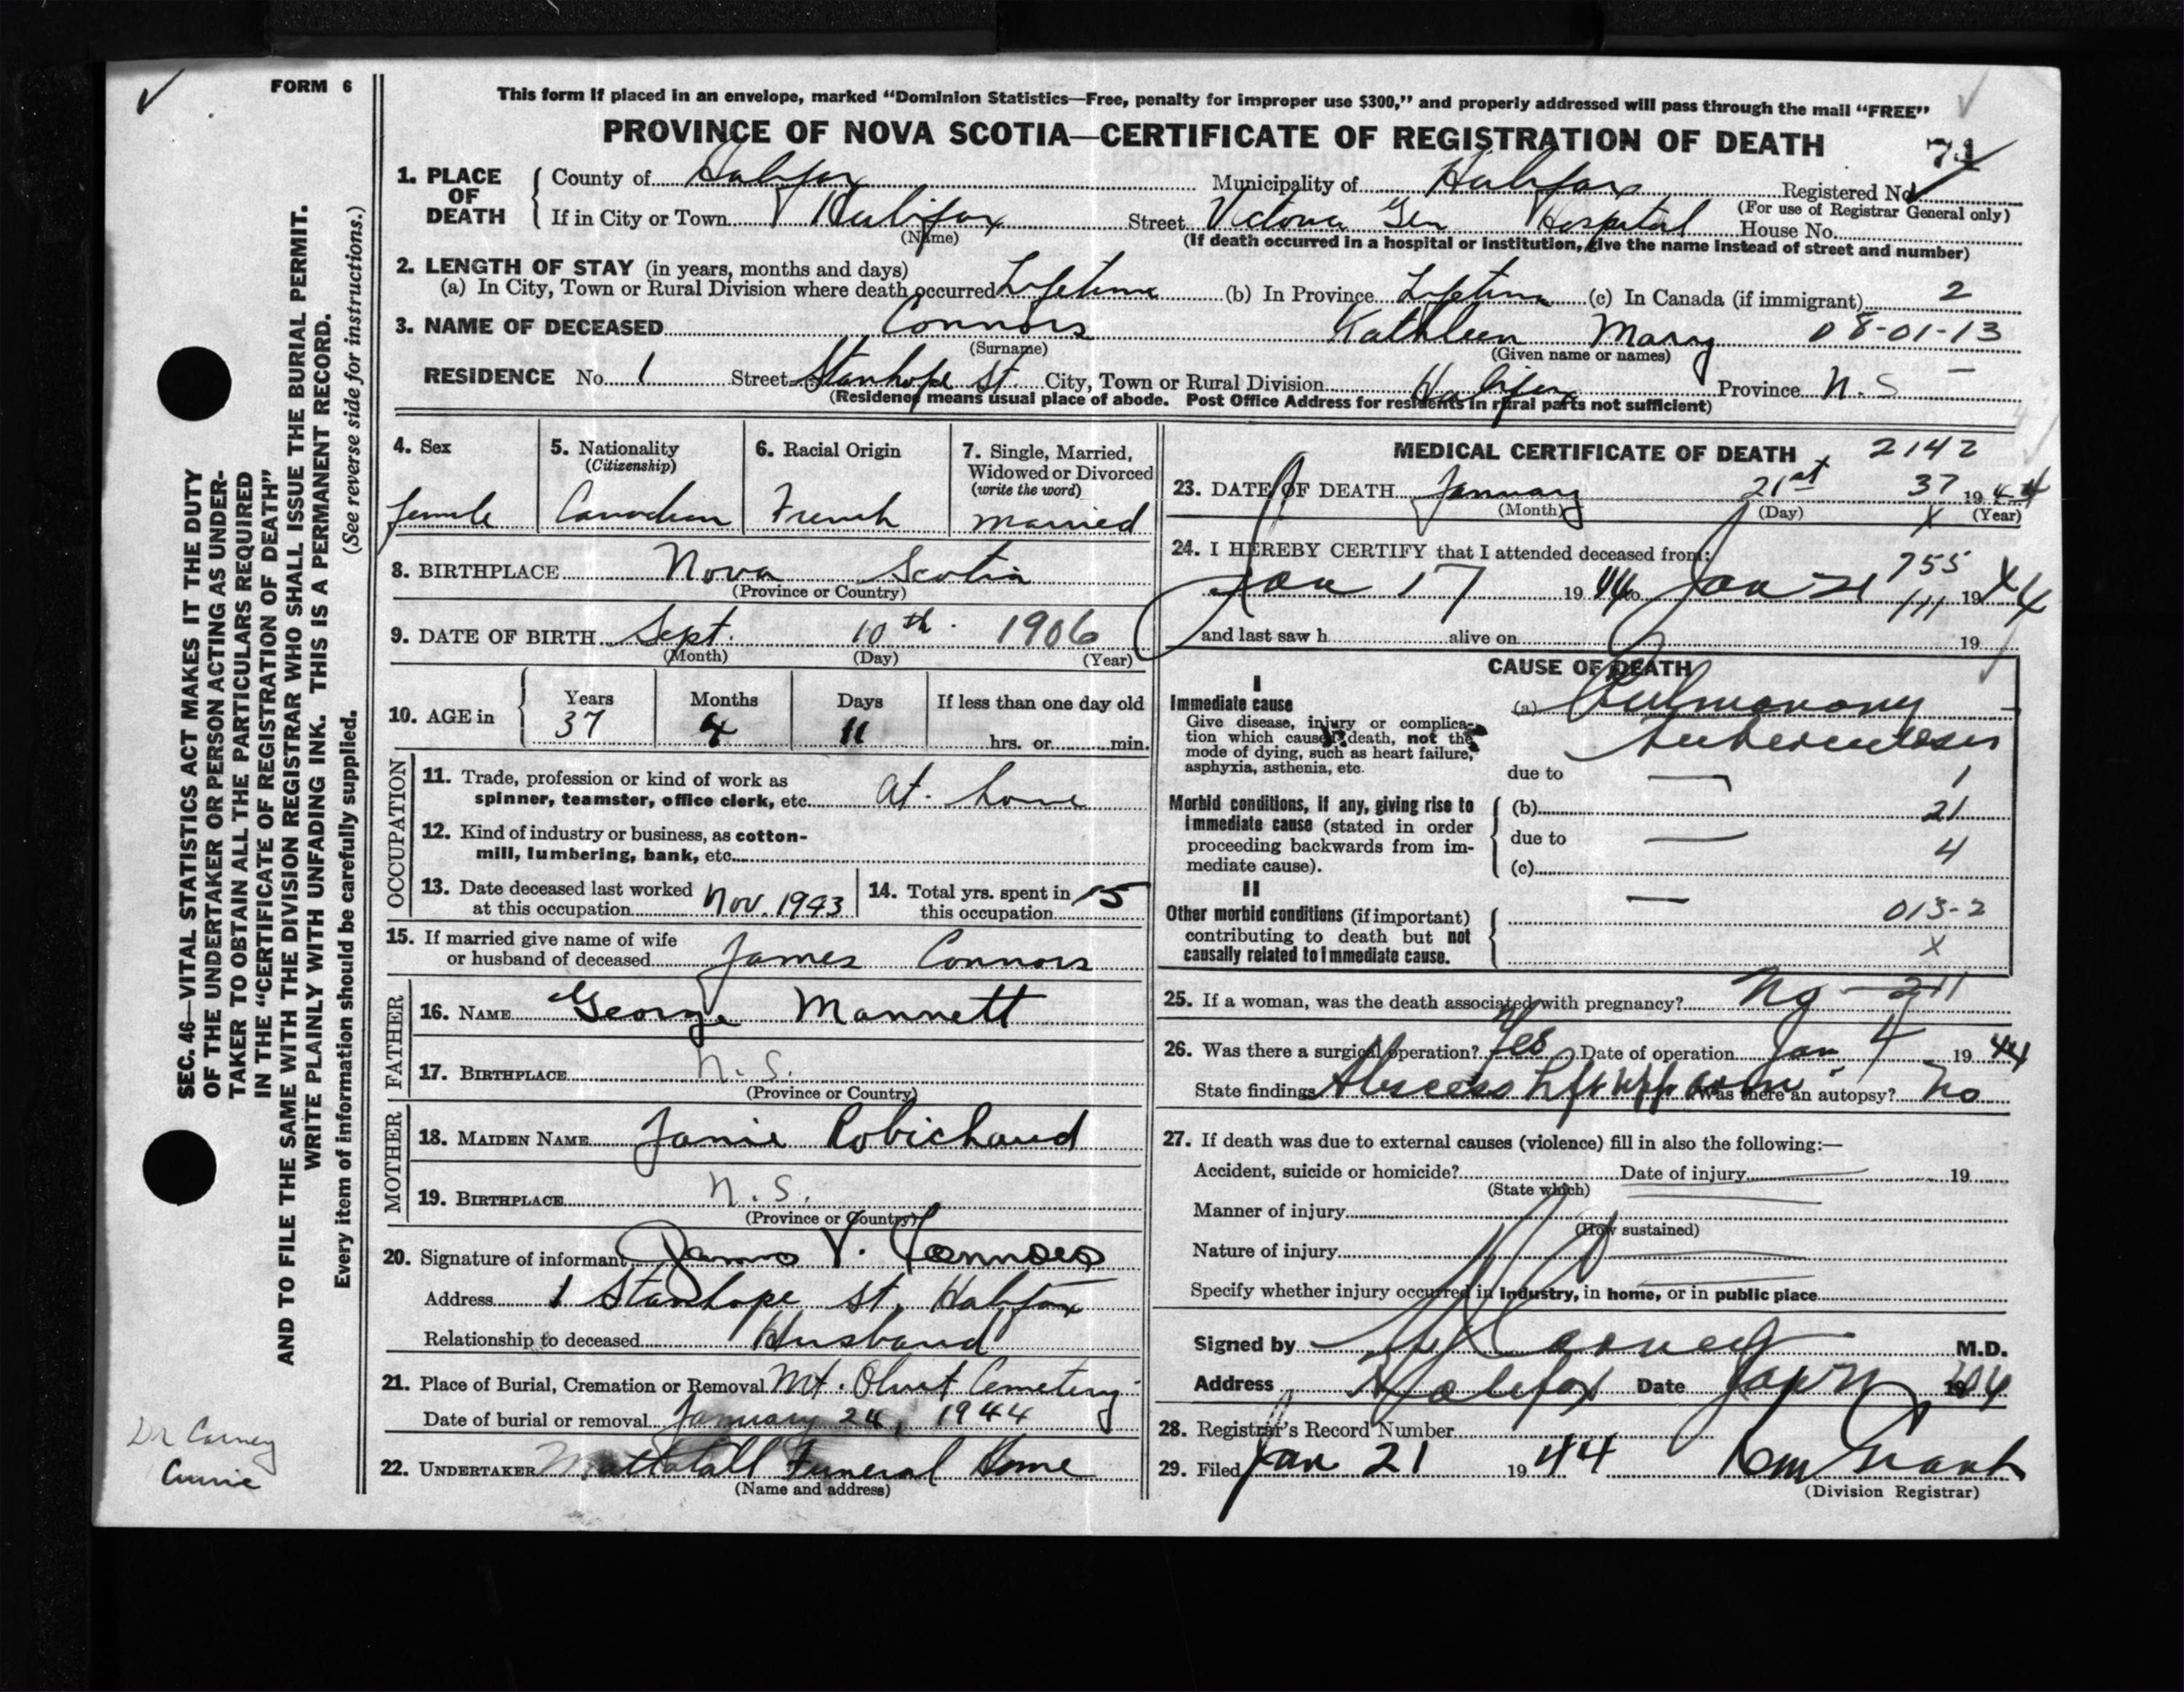 FORM 6
This form if placed in an envelope, marked “Dominion Statistics—Free, penalty for improper use $300,” and properly addressed will pass through the mail “FREE”
PROVINCE OF NOVA SCOTIA—CERTIFICATE OF REGISTRATION OF DEATH
71
1. PLACE OF DEATH
County of Halifax Municipality of Halifax Registered No.
(For use of Registrar General only)
If in City or Town Halifax Street Victoria Gen Hospital House No.
(Name) (If death occurred in a hospital or institution, give the name instead of street and number)
2. LENGTH OF STAY (in years, months and days)
(a) In City, Town or Rural Division where death occurred Lifetime (b) In Province Lifetime (c) In Canada (if immigrant) 2
3. NAME OF DECEASED Connors Kathleen Mary 08-01-13
(Surname) (Given name or names)
RESIDENCE No. 1 Street Stanhope St. City, Town or Rural Division Halifax Province N.S
(Residence means usual place of abode. Post Office Address for residents in rural parts not sufficient)
4. Sex
female
5. Nationality
(Citizenship)
Canadian
6. Racial Origin
French
7. Single, Married,
Widowed or Divorced
(write the word)
married
8. BIRTHPLACE Nova Scotia
(Province or Country)
9. DATE OF BIRTH Sept. 10th. 1906
(Month) (Day) (Year)
10. AGE in
Years Months Days If less than one day old
37 4 11 hrs. or min.
OCCUPATION
11. Trade, profession or kind of work as
spinner, teamster, office clerk, etc. at home
12. Kind of industry or business, as cotton-
mill, lumbering, bank, etc.
13. Date deceased last worked
at this occupation Nov. 1943
14. Total yrs. spent in
this occupation 15
15. If married give name of wife
or husband of deceased James Connors
FATHER
16. NAME George Mannett
17. BIRTHPLACE N.S.
(Province or Country)
MOTHER
18. MAIDEN NAME Janie Robichaud
19. BIRTHPLACE N.S.
(Province or Country)
20. Signature of informant James V. Connors
Address 1 Stanhope St, Halifax
Relationship to deceased Husband
21. Place of Burial, Cremation or Removal Mt. Olivet Cemetery
Date of burial or removal January 24, 1944
22. UNDERTAKER Mattatall Funeral Home
(Name and address)
MEDICAL CERTIFICATE OF DEATH 2142
X
23. DATE OF DEATH January 21st 37 1944
(Month) (Day) X (Year)
24. I HEREBY CERTIFY that I attended deceased from:
755
Jan 17 1944 to Jan 21 111 1944
and last saw h alive on 19
CAUSE OF DEATH
I
Immediate cause
Give disease, injury or complica-
tion which caused death, not the
mode of dying, such as heart failure,
asphyxia, asthenia, etc.
(a) Pulmonary
Tuberculosis
due to — 1
Morbid conditions, if any, giving rise to
immediate cause (stated in order
proceeding backwards from im-
mediate cause).
(b) 21
due to — 4
(c)
II
Other morbid conditions (if important)
contributing to death but not
causally related to immediate cause.
—
013-2
X
25. If a woman, was the death associated with pregnancy? No
26. Was there a surgical operation? Yes Date of operation Jan. 4 1944
State findings Abscess Left Upp arm Was there an autopsy? No
27. If death was due to external causes (violence) fill in also the following:—
Accident, suicide or homicide? Date of injury 19
(State which)
Manner of injury
(How sustained)
Nature of injury
Specify whether injury occurred in industry, in home, or in public place
Signed by Carney M.D.
Address Halifax Date Jan 19
28. Registrar's Record Number
29. Filed Jan 21 1944 Grant
(Division Registrar)
SEC. 46—VITAL STATISTICS ACT MAKES IT THE DUTY
OF THE UNDERTAKER OR PERSON ACTING AS UNDER-
TAKER TO OBTAIN ALL THE PARTICULARS REQUIRED
IN THE “CERTIFICATE OF REGISTRATION OF DEATH”
AND TO FILE THE SAME WITH THE DIVISION REGISTRAR WHO SHALL ISSUE THE BURIAL PERMIT.
WRITE PLAINLY WITH UNFADING INK. THIS IS A PERMANENT RECORD.
Every item of information should be carefully supplied. (See reverse side for instructions.)
Dr Carney
Currie